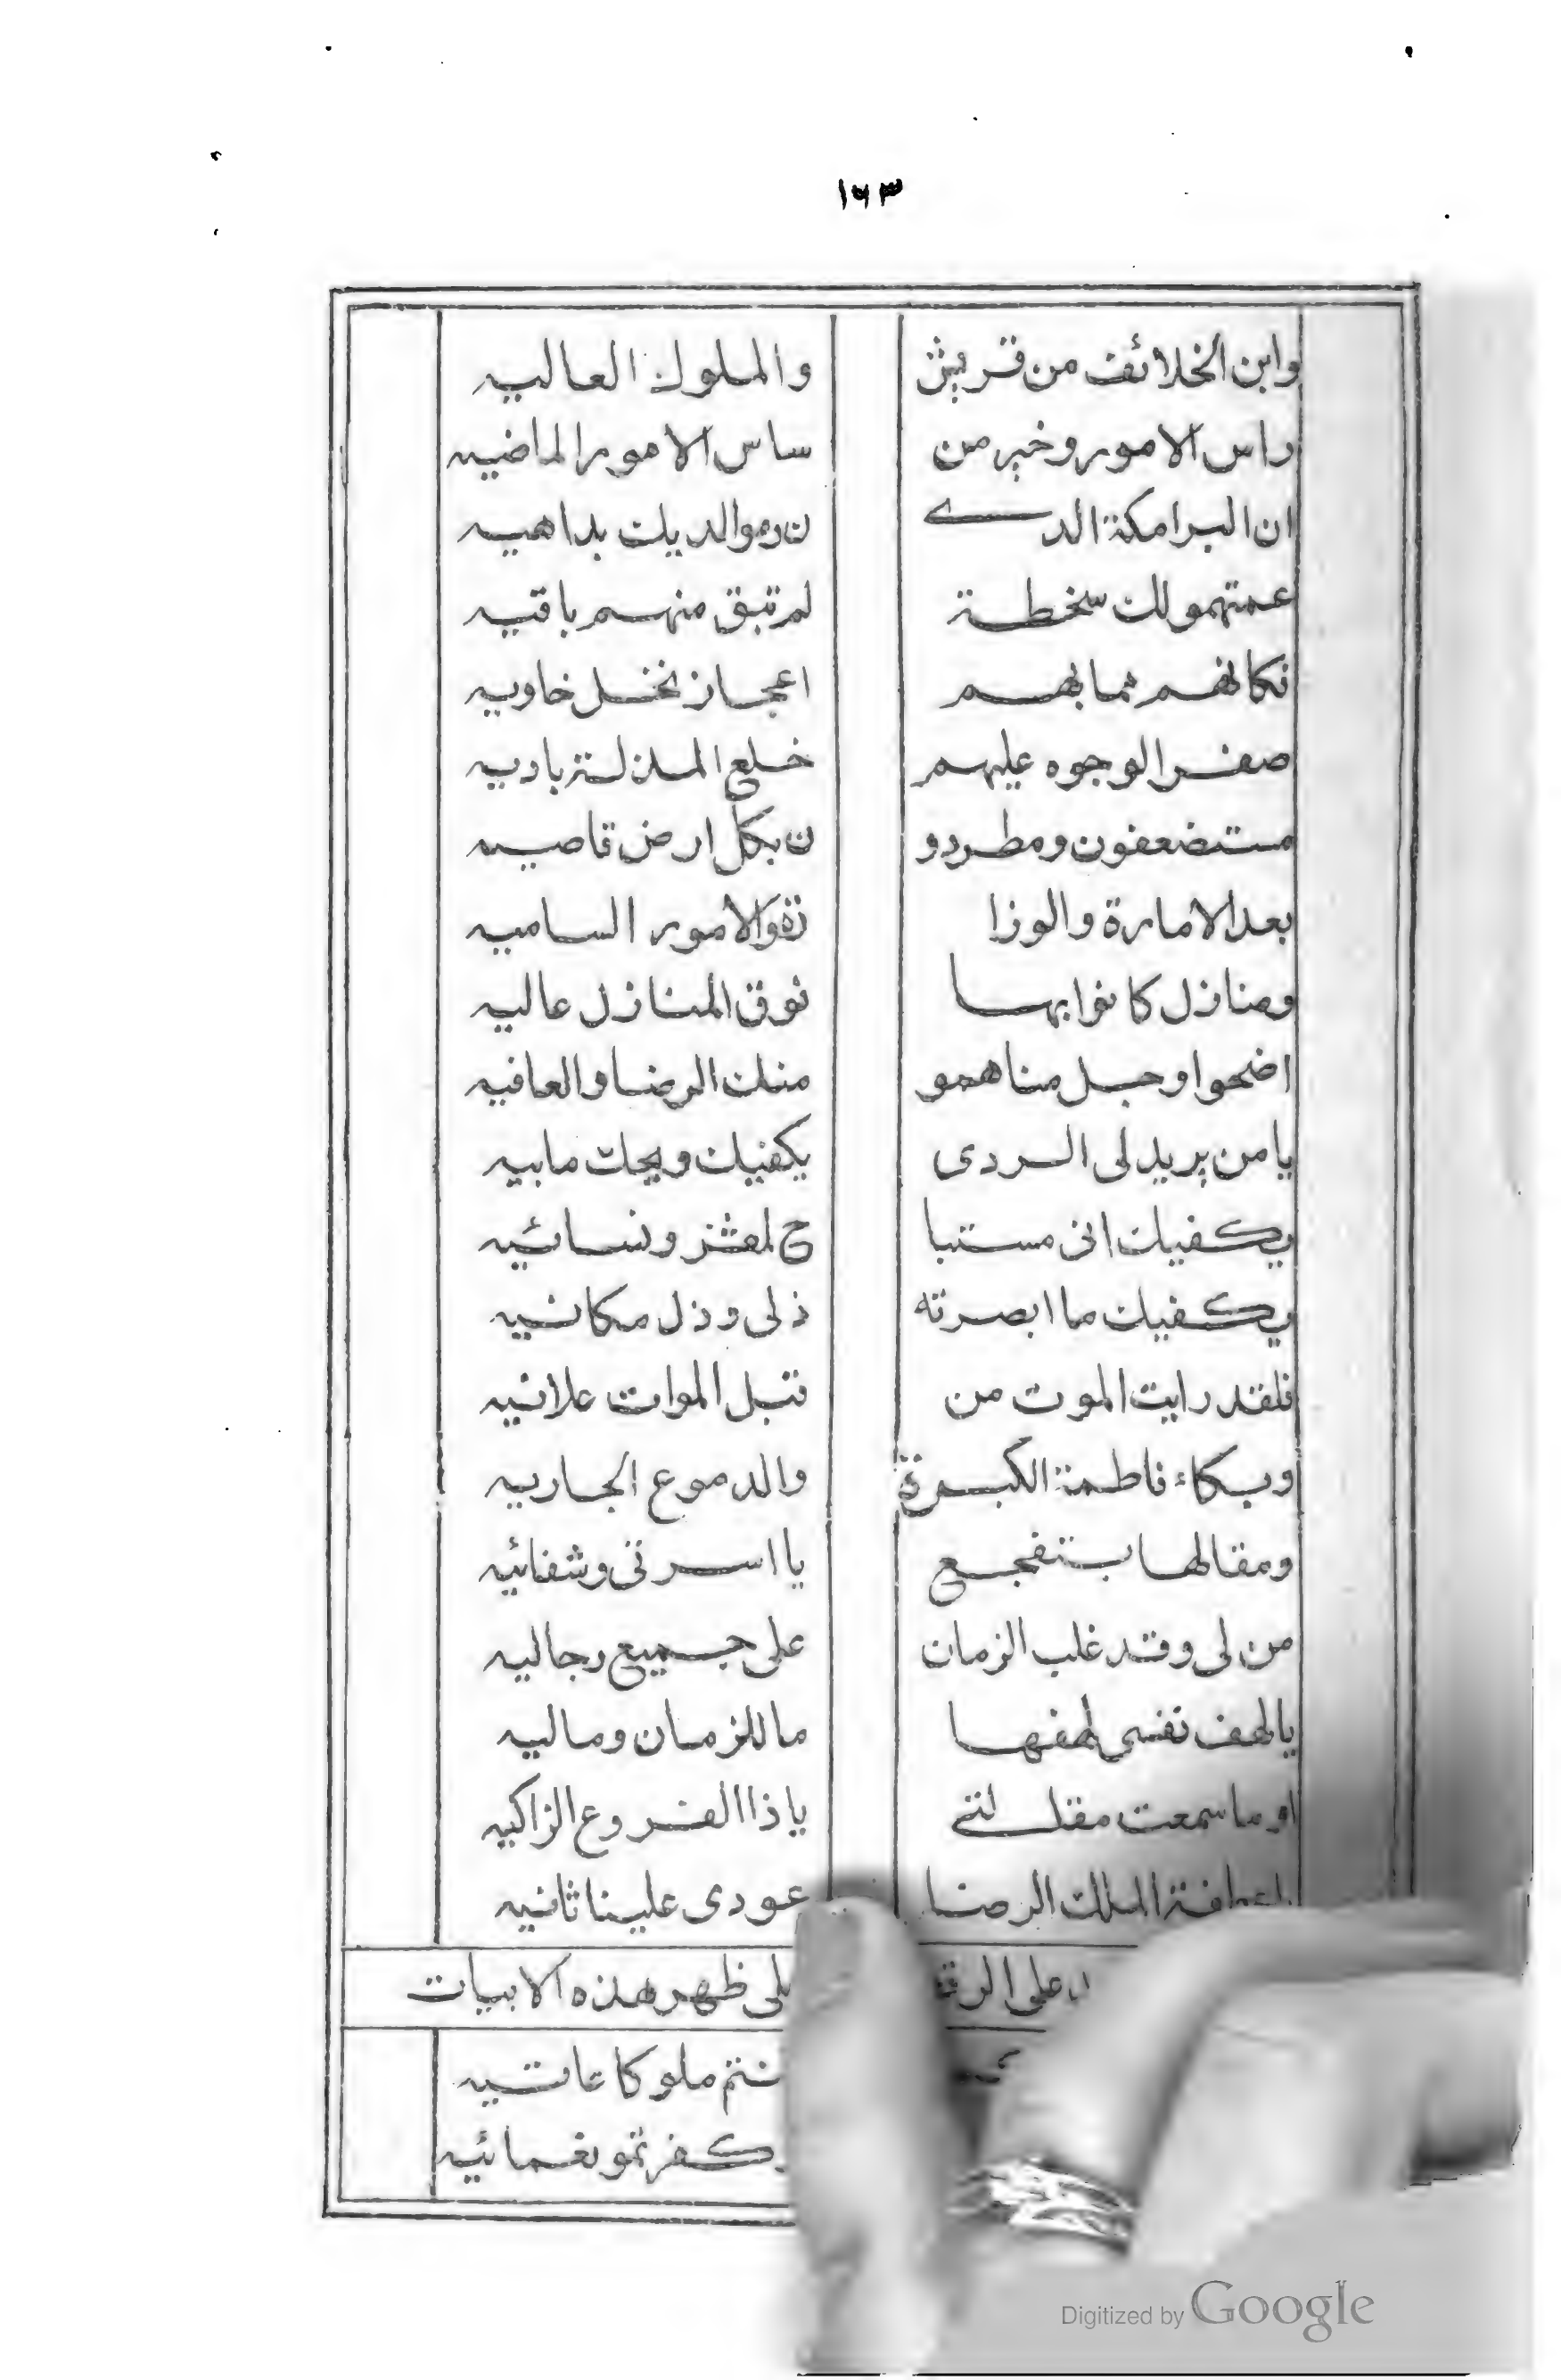 ١٦٣
وابن الخلائف من قريش والملوك العاليه
راس الامور وخير من ساس الامور الماضيه
ان البرامكة الذے ن رموا لديك بداهيه
عمتهمو لك سخطة لم تبق منهم باقيه
فكانهم مما بهم اعجاز نخل خاويه
صفر الوجوه عليهم خلع المذلة باديه
مستضعفون ومطردو ن بكل ارض قاصيه
بعد الامارة والوزا رة والامور الساميه
ومنازل كانوا بها فوق المنازل عاليه
اضحوا وجل مناهمو منك الرضا والعافيه
يا من يريد لى الردى يكفيك ويحك مابيه
يكفيك انى مستبا ح لمعشرى ونسائيه
يكفيك ما ابصرته ذلى وذل مكانيه
فلقد رايت الموت من قبل الموات علانيه
وبكاء فاطمة الكبيرة والدموع الجاريه
ومقالها بتفجع يا اسرتى وشفائيه
من لى وقد غلب الزمان على جميع رجاليه
يا لهف نفسى لهفها ما للزمان وماليه
او ما سمعت مقالتى يا ذا الفروع الزاكيه
يا عطفة الملك الرضا عودى علينا ثانيه
على ظهر هذه الابيات
ملوكا عاتيه
نعمائيه
Digitized by Google